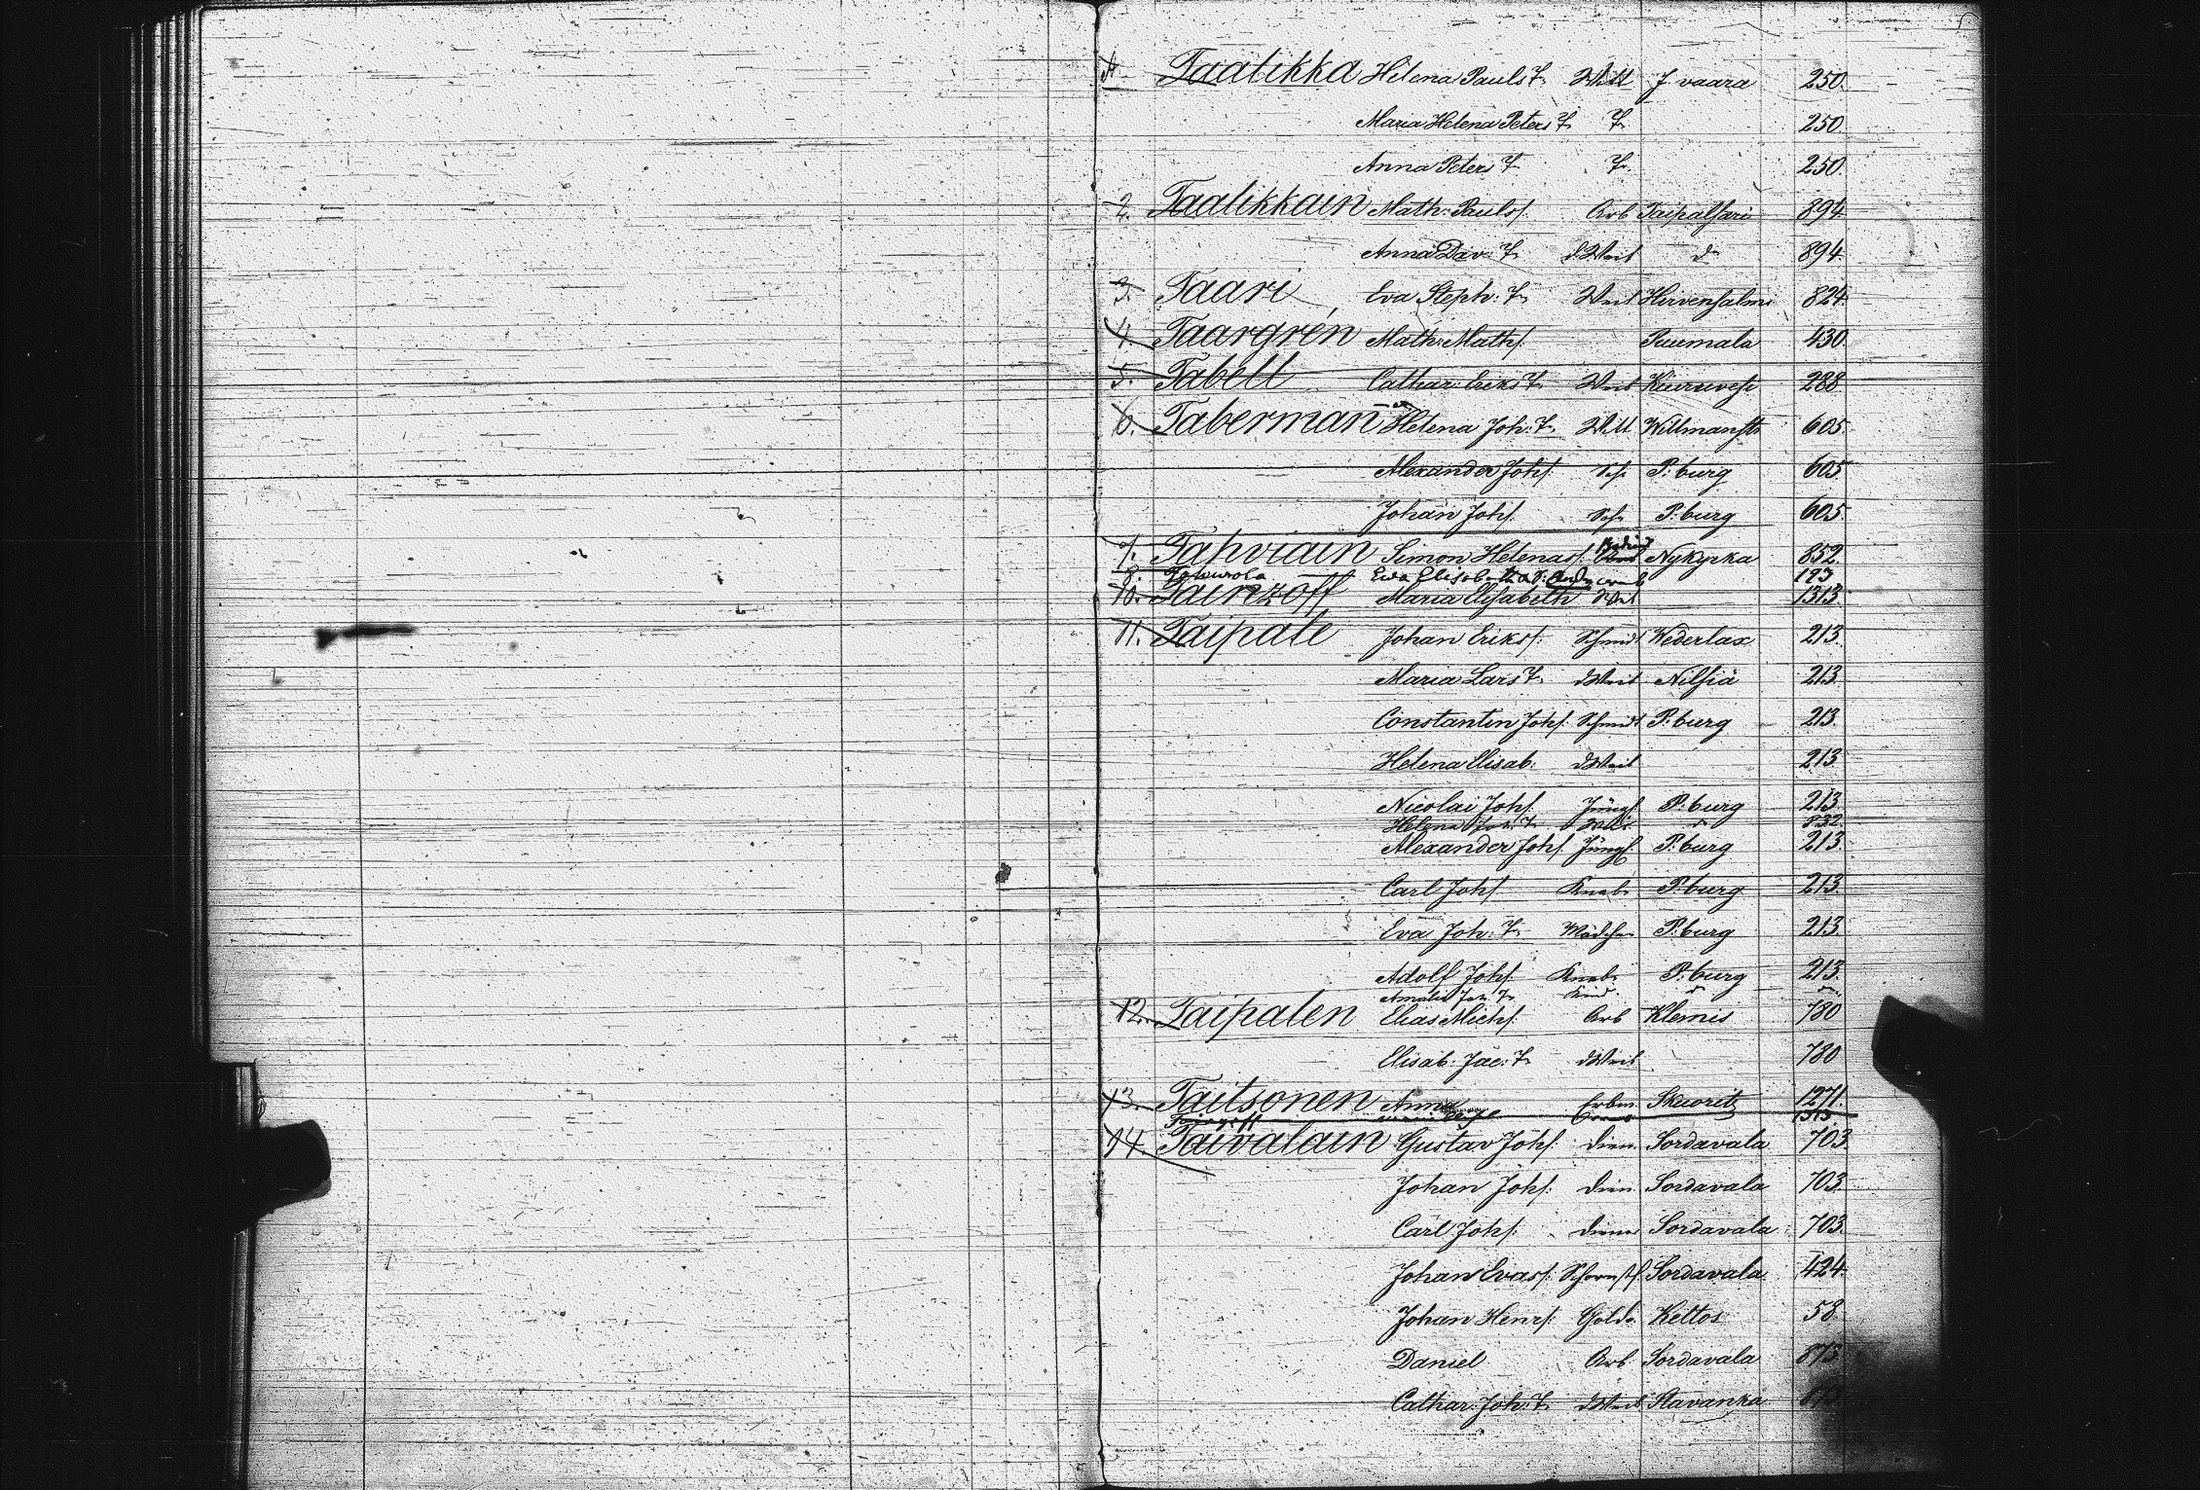 1. Taalikka Helena Pauls T. Witt J. vaara 250.
Maria Helena Peters T. T. 250
Anna Peters T T. 250
2. Taalikkain Math: Paulsf. Arb Taipalsari 894
Anna Dav: T. d Weib do 894.
3. Taari Eva Steph: T. Weib Hirvensalmi 824
4. Taargrén Math: Mathf. Puumala 430
5. Tabell Cathar: Eriks T. Weib Kiuruvesi 288
6. Taberman Helena Joh: T. Witt Willmanst. 605.
Alexander Johf. P:burg 605
Johan Johf. P:burg 605.
7. Tahviain Simon Helenasf. Nykyrka 852.
8. Eva Elisab 193
10. Tainzoff Maria Elisabeth Weib 1313.
11. Taipale Johan Eriksf. Schmidt Wederlax 213.
Maria Lars T. d Weib Nilsiä 213
Constantin Johf. Schmidt P:burg 213
Helena Elisab: d Weib 213
Nicolai Johf. Jüngl. P:burg 213
Helena Joh: T. Weib 832
Alexander Johf. Jüngl P:burg 213.
Carl Johf Knabe P:burg 213.
Eva Joh: T. Mädchen P:burg 213.
Adolf Johf. Knabe P:burg 213.
Amalia Joh: T. Kind
12. Taipalen Elias Michf. Arb Klemis 780
Elisab: Jac: T. d Weib 780
13. Taitsonen Anna Skworitz 1271.
1313
14. Taivalain Gustav Johf. Dien. Sordavala 703.
Johan Johf: Dien. Sordavala 703.
Carl Johf. Diener Sordavala 703.
Johan Evasf: Schornstf. Sordavala 424.
Johan Henrf: Golds. Keltos 58.
Daniel Arb Sordavala 873
Cathar: Joh: T. d Weib Slavanka